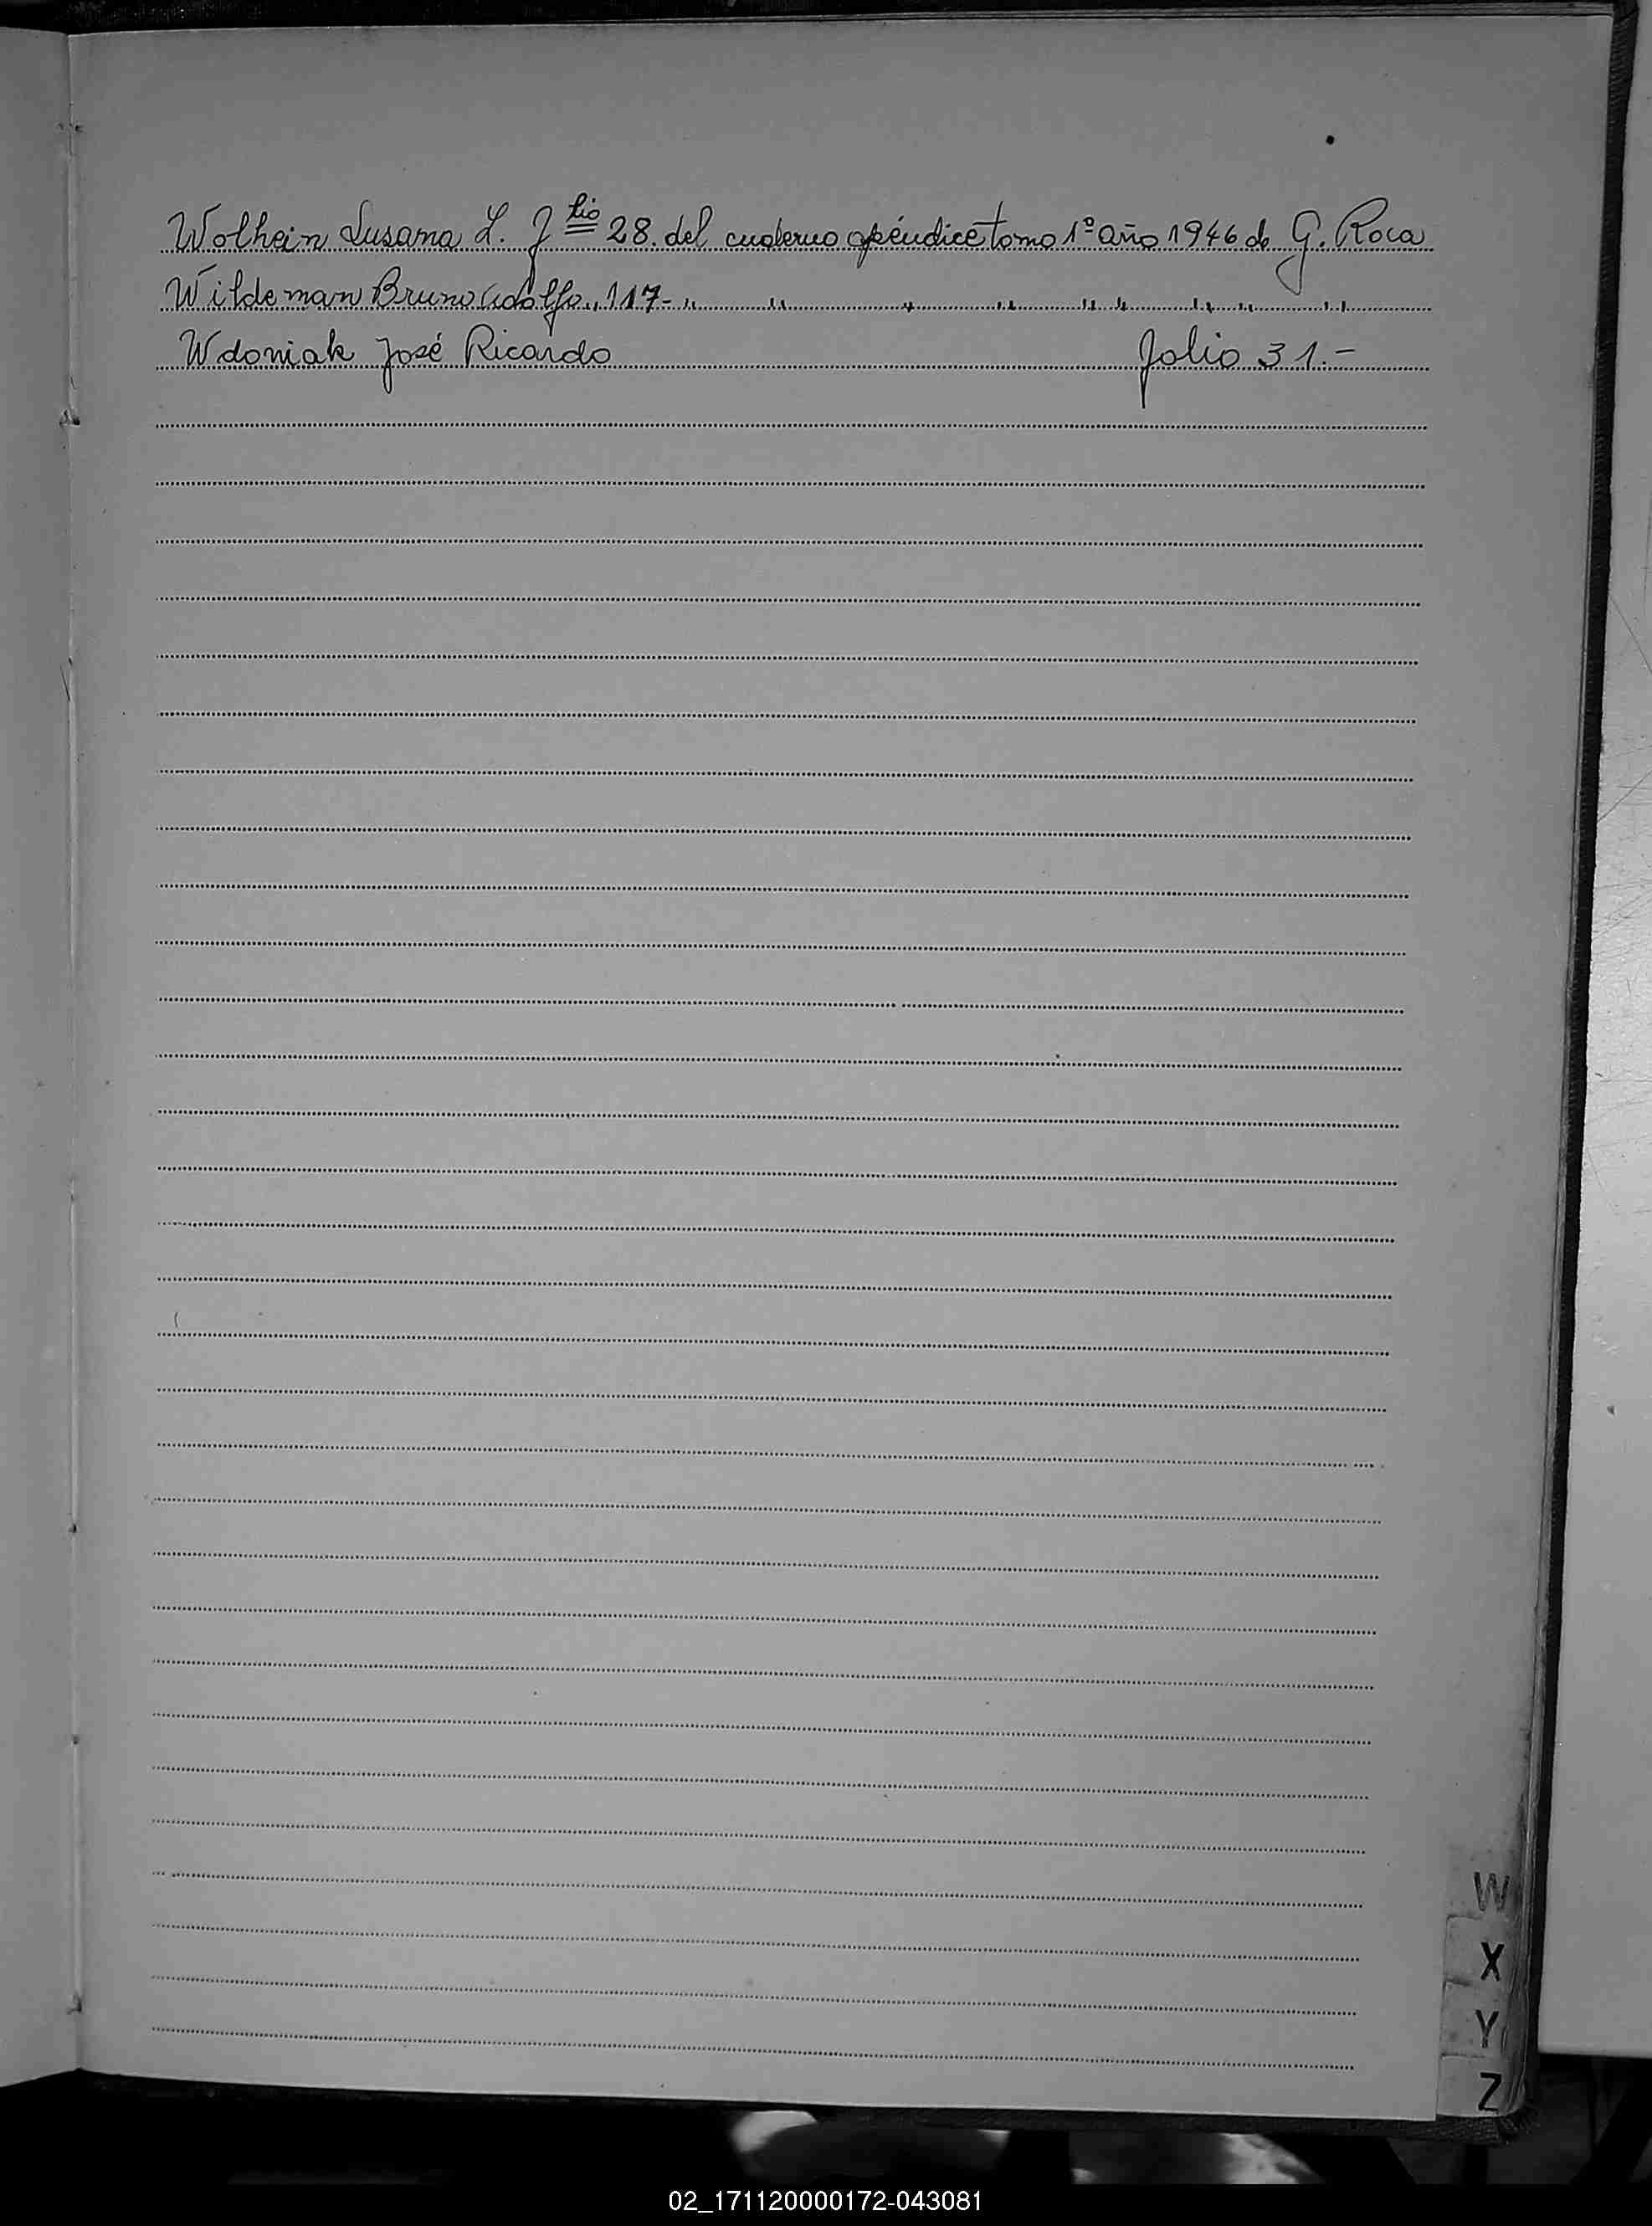 Wolhein Susana L. Flio 28. del cuaderno apéndice tomo 1º año 1946 de G. Roca
Wildeman Bruno Adolfo " 117- " " " " " " " " "
Wdoniak José Ricardo folio 31.-
W
X
Y
Z
02_171120000172-043081